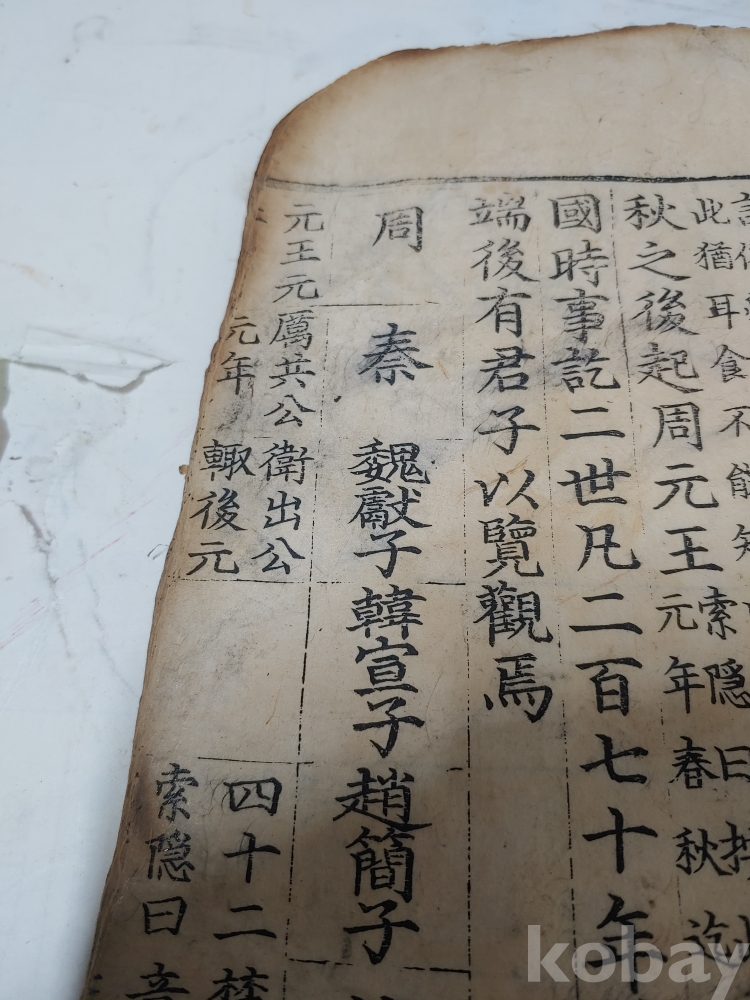 此猶耳食不能知
秋之後起周元王
索隠曰
元年春秋迄
國時事訖二世凡二百七十年
端後有君子以覽觀焉
周
秦
魏獻子
韓宣子
趙簡子
元王元
厲共公
元年
衛出公
輙後元
四十二
索隠曰
kobay